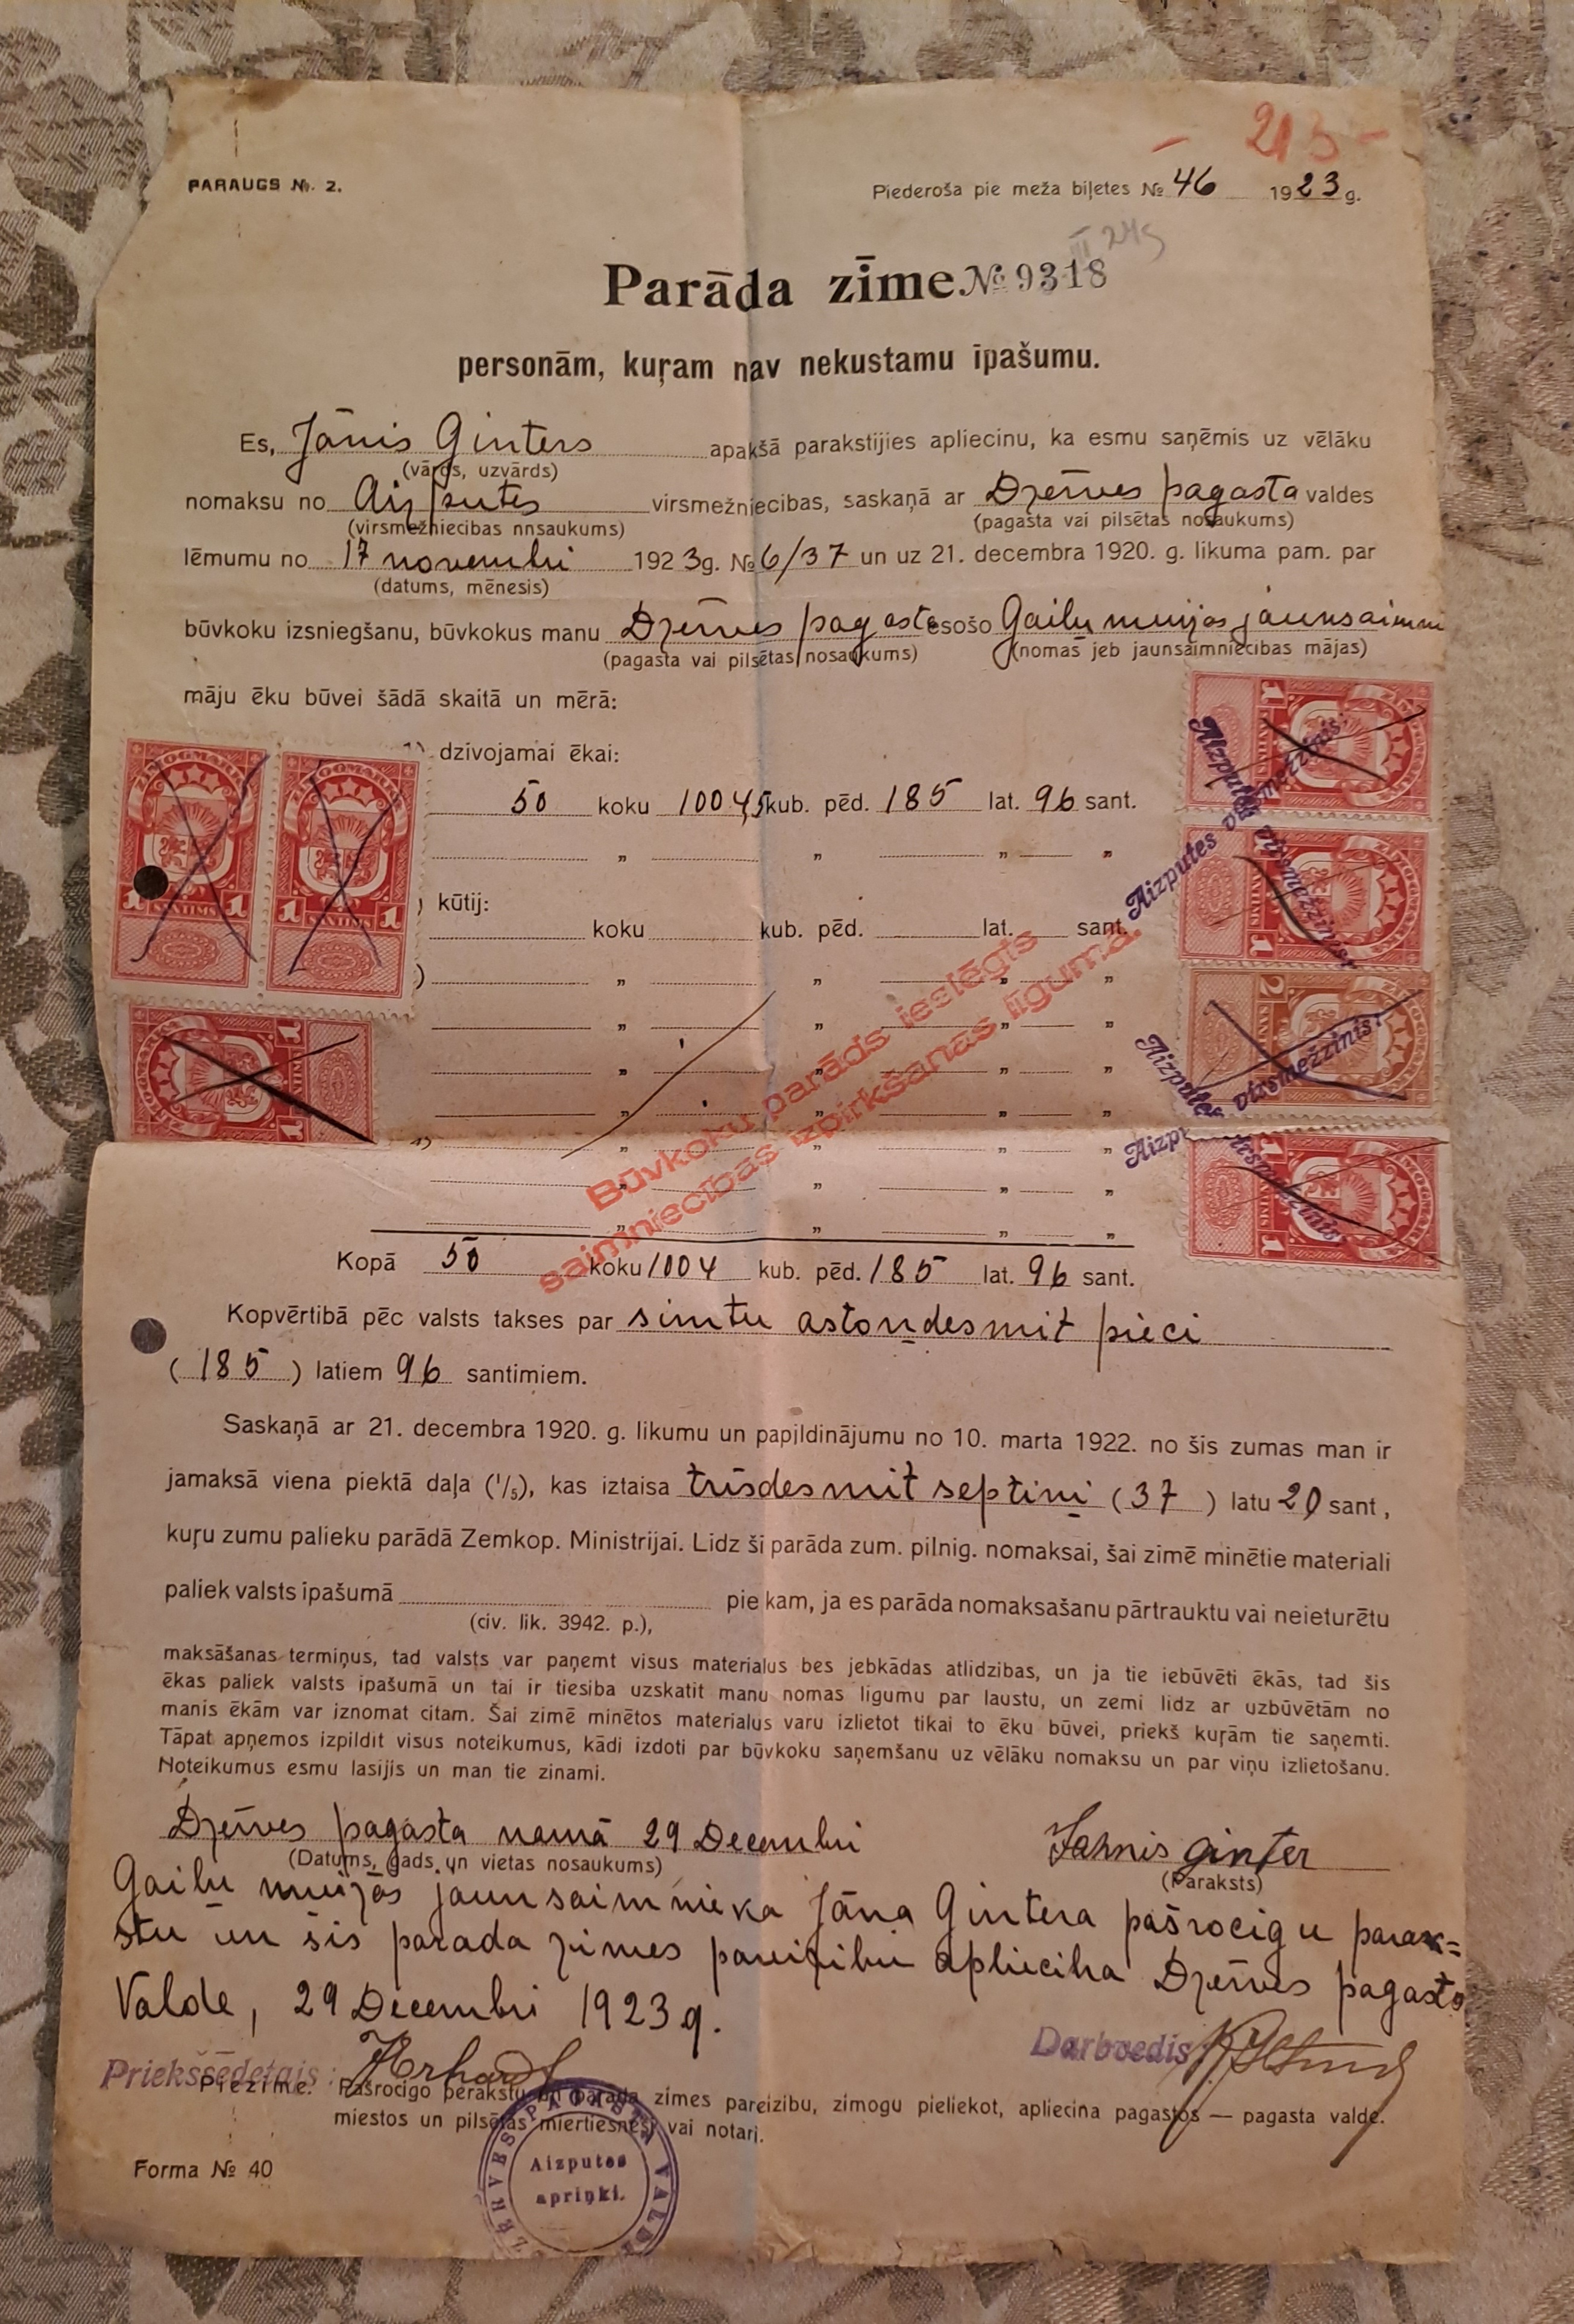 - 213 -
PARAUGS № 2.
Piederoša pie meža biļetes № 46 1923 g.
III 245
Parāda zīme № 9318
personām, kuŗam nav nekustamu īpašumu.
Es, Jānis Ginters apakšā parakstijies apliecinu, ka esmu saņēmis uz vēlāku
(vārds, uzvārds)
nomaksu no Aizputes virsmežniecibas, saskaņā ar Dzērves pagasta valdes
(virsmežniecibas nnsaukums) (pagasta vai pilsētas nosaukums)
lēmumu no 17 novembri 1923 g. № 6/37 un uz 21. decembra 1920. g. likuma pam. par
(datums, mēnesis)
būvkoku izsniegšanu, būvkokus manu Dzērves pagastā esošo Gaiļu muižas jaunsaimn
(pagasta vai pilsētas nosaukums) (nomas jeb jaunsaimniecibas mājas)
māju ēku būvei šādā skaitā un mērā:
dzivojamai ēkai:
50 koku 1004,5 kub. pēd. 185 lat. 96 sant.
" " " "
) kūtij:
koku kub. pēd. lat. sant.
) " " " "
" " " "
" " " "
" " " "
) " " " "
" " " "
" " " "
Būvkoku parāds ieslēgts
saimniecības izpirkšanas līgumā.
ZIMOGMARKA
1 SANTIMS 1
ZIMOGMARKA
1 SANTIMS 1
ZIMOGMARKA
1 SANTIMS 1
Aizputes virsmežzinis.
Aizputes virsmežzinis.
Aizputes virsmežzinis.
Aizp virsmežzinis
Kopā 50 koku 1004 kub. pēd. 185 lat. 96 sant.
Kopvērtibā pēc valsts takses par simtu astoņdesmit pieci
( 185 ) latiem 96 santimiem.
Saskaņā ar 21. decembra 1920. g. likumu un papildinājumu no 10. marta 1922. no šis zumas man ir
jamaksā viena piektā daļa (1/5), kas iztaisa trīsdesmit septiņi ( 37 ) latu 20 sant,
kuŗu zumu palieku parādā Zemkop. Ministrijai. Lidz ši parāda zum. pilnig. nomaksai, šai zimē minētie materiali
paliek valsts īpašumā pie kam, ja es parāda nomaksašanu pārtrauktu vai neieturētu
(civ. lik. 3942. p.),
maksāšanas termiņus, tad valsts var paņemt visus materialus bes jebkādas atlidzibas, un ja tie iebūvēti ēkās, tad šis
ēkas paliek valsts ipašumā un tai ir tiesiba uzskatit manu nomas ligumu par laustu, un zemi lidz ar uzbūvētām no
manis ēkām var iznomat citam. Šai zimē minētos materialus varu izlietot tikai to ēku būvei, priekš kuŗām tie saņemti.
Tāpat apņemos izpildit visus noteikumus, kādi izdoti par būvkoku saņemšanu uz vēlāku nomaksu un par viņu izlietošanu.
Noteikumus esmu lasijis un man tie zinami.
Dzērves pagasta namā 29 Decembri Jahnis Ginter
(Datums, gads un vietas nosaukums) (Paraksts)
Gaiļu muižas jaunsaimnieka Jāņa Gintera pašrocigu parak=
stu un šis parada zimes pareizibu apliecina Dzērves pagasta
Valde, 29 Decembri 1923 g.
Priekšsēdetajs: JErhardt Darbvedis
Piezime. Pašrocigo perakstu un parāda zimes pareizibu, zimogu pieliekot, apliecina pagastos — pagasta valde.
miestos un pilsētās miertiesneši vai notari.
DZĒRVES PAGASTA VALDE
Aizputes
apriņķi.
Forma № 40